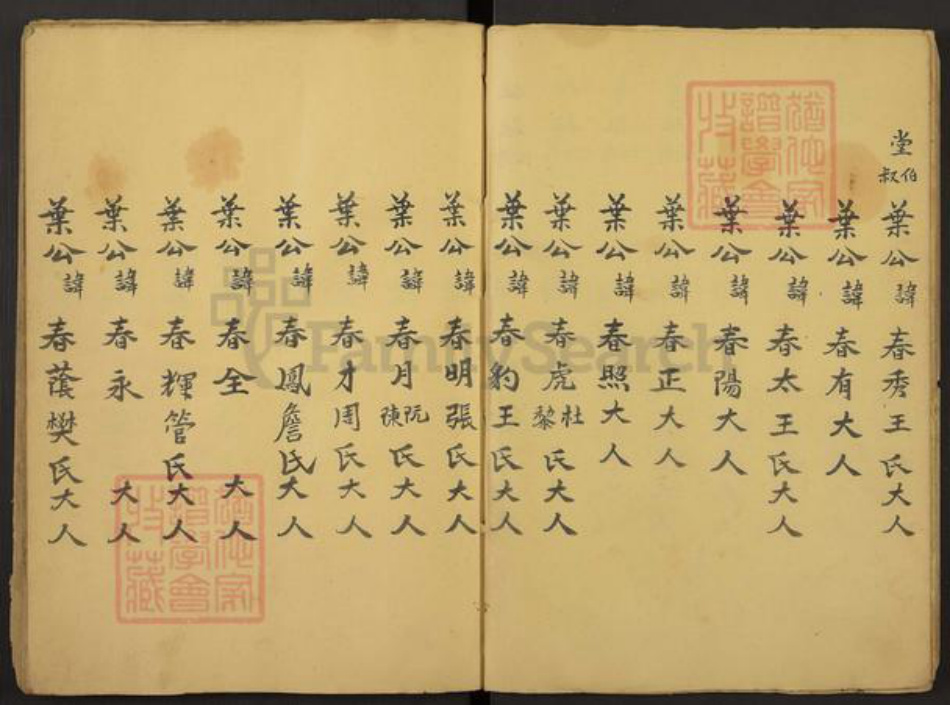 堂伯叔葉公諱春秀王氏大人
葉公諱春有大人
葉公諱春太王氏大人
葉公諱春陽大人
葉公諱春正大人
葉公諱春照大人
葉公諱春虎杜黎氏大人
葉公諱春豹王氏大人
葉公諱春明張氏大人
葉公諱春月阮陳氏大人
葉公諱春才周氏大人
葉公諱春鳳詹氏大人
葉公諱春全大人
葉公諱春輝管氏大人
葉公諱春永大人
葉公諱春蔭樊氏大人
譜學會
收藏
譜學會
收藏
FamilySearch